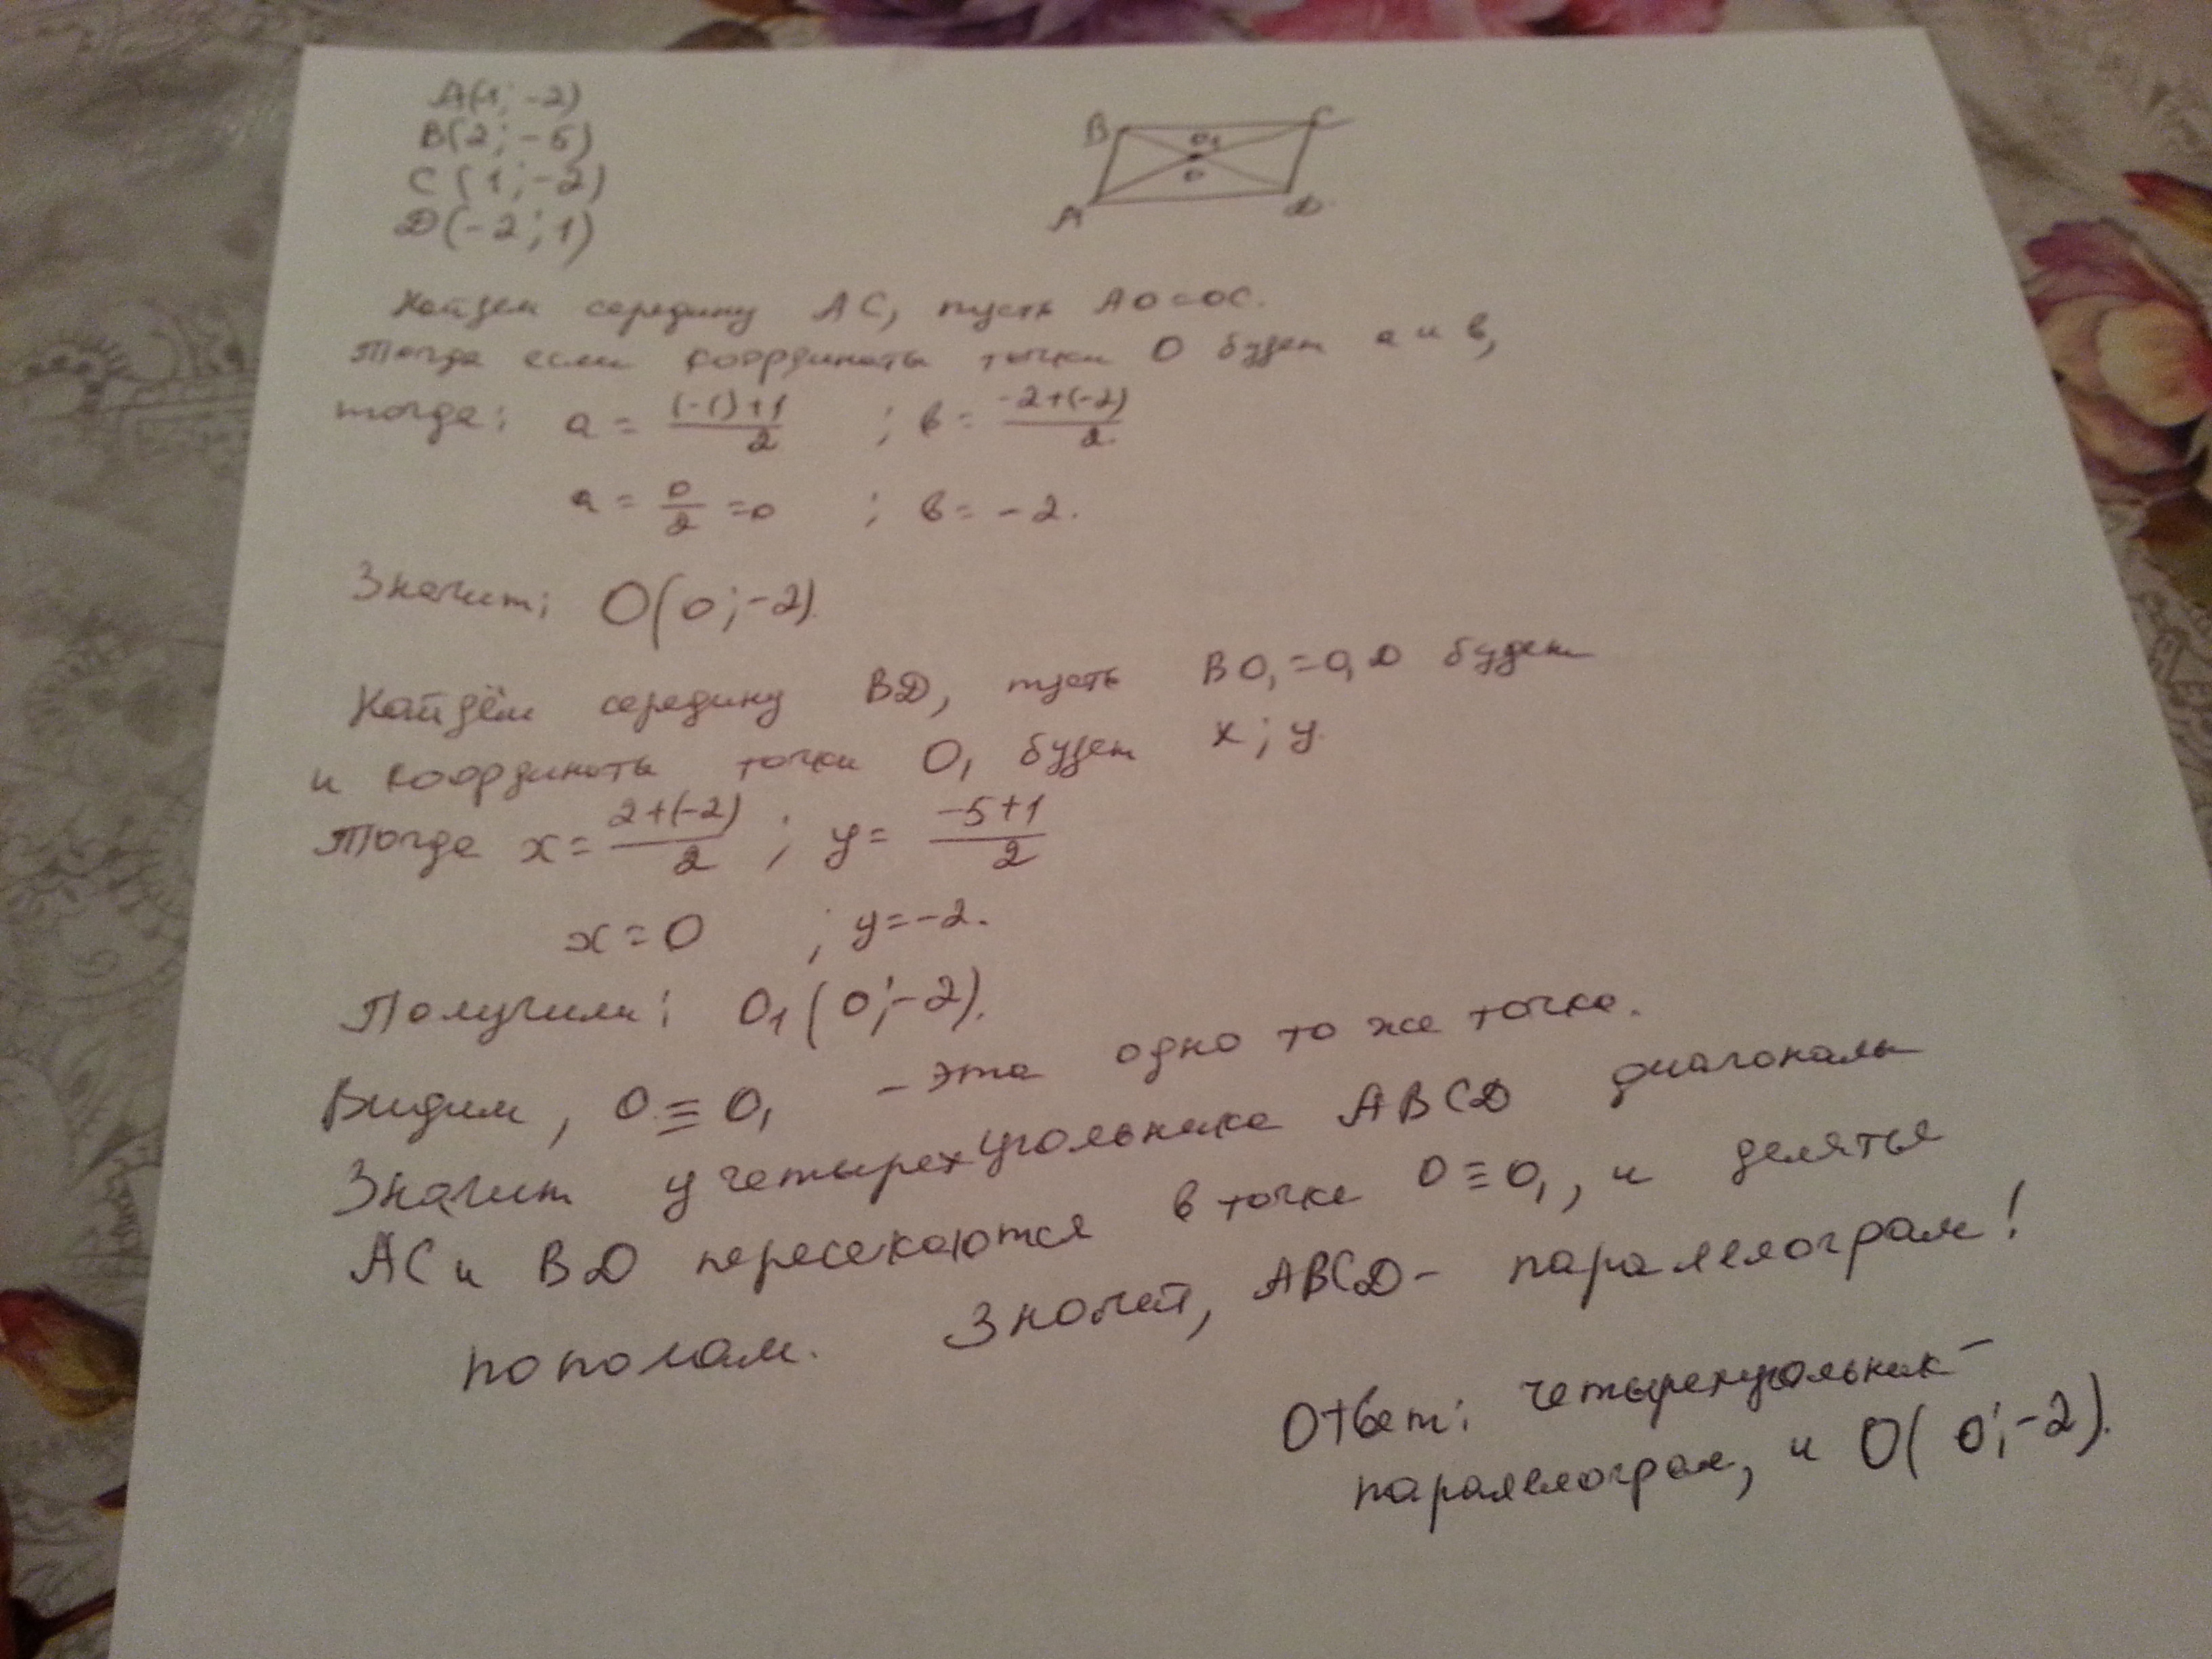 A(1; -2)
B(2; -5)
C(1; -2)
D(-2; 1)
B C
O1
O
A D
Найдем середину AC, пусть AO=OC.
Тогда если координаты точки O будет a и b,
тогда: a = ((-1)+1)/2 ; b = (-2+(-2))/2
a = 0/2 =0 ; b = -2.
Значит: O(0; -2).
Найдём середину BD, пусть BO1=O1D будет
и координаты точки O1 будет x; y.
Тогда x = (2+(-2))/2 ; y = (-5+1)/2
x = 0 ; y = -2.
Получили: O1(0; -2).
Видим, O ≡ O1 - эта одно то же точка.
Значит у четырехугольника ABCD диагонали
AC и BD пересекаются в точке O ≡ O1, и делятья
пополам. Значет, ABCD - паралелограм!
Ответ: четырехугольник -
паралелограм, и O(0; -2).